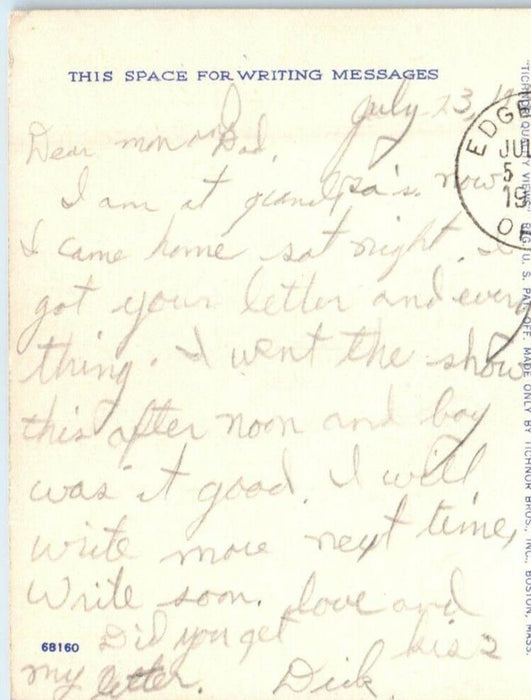 THIS SPACE FOR WRITING MESSAGES
July 23, 19
Dear mom and Dad,
I am at grandpa's. now
I came home sat night. I
got your letter and every
thing. I went the show
this after noon and boy
was it good. I will
write more next time,
Write soon. love and
kiss
Did you get
my letter. Dick
68160
EDGE
JUL
5
19
O
"TICHNOR QUALITY VIEWS," REG. U. S. PAT. OFF. MADE ONLY BY TICHNOR BROS., INC., BOSTON, MASS.